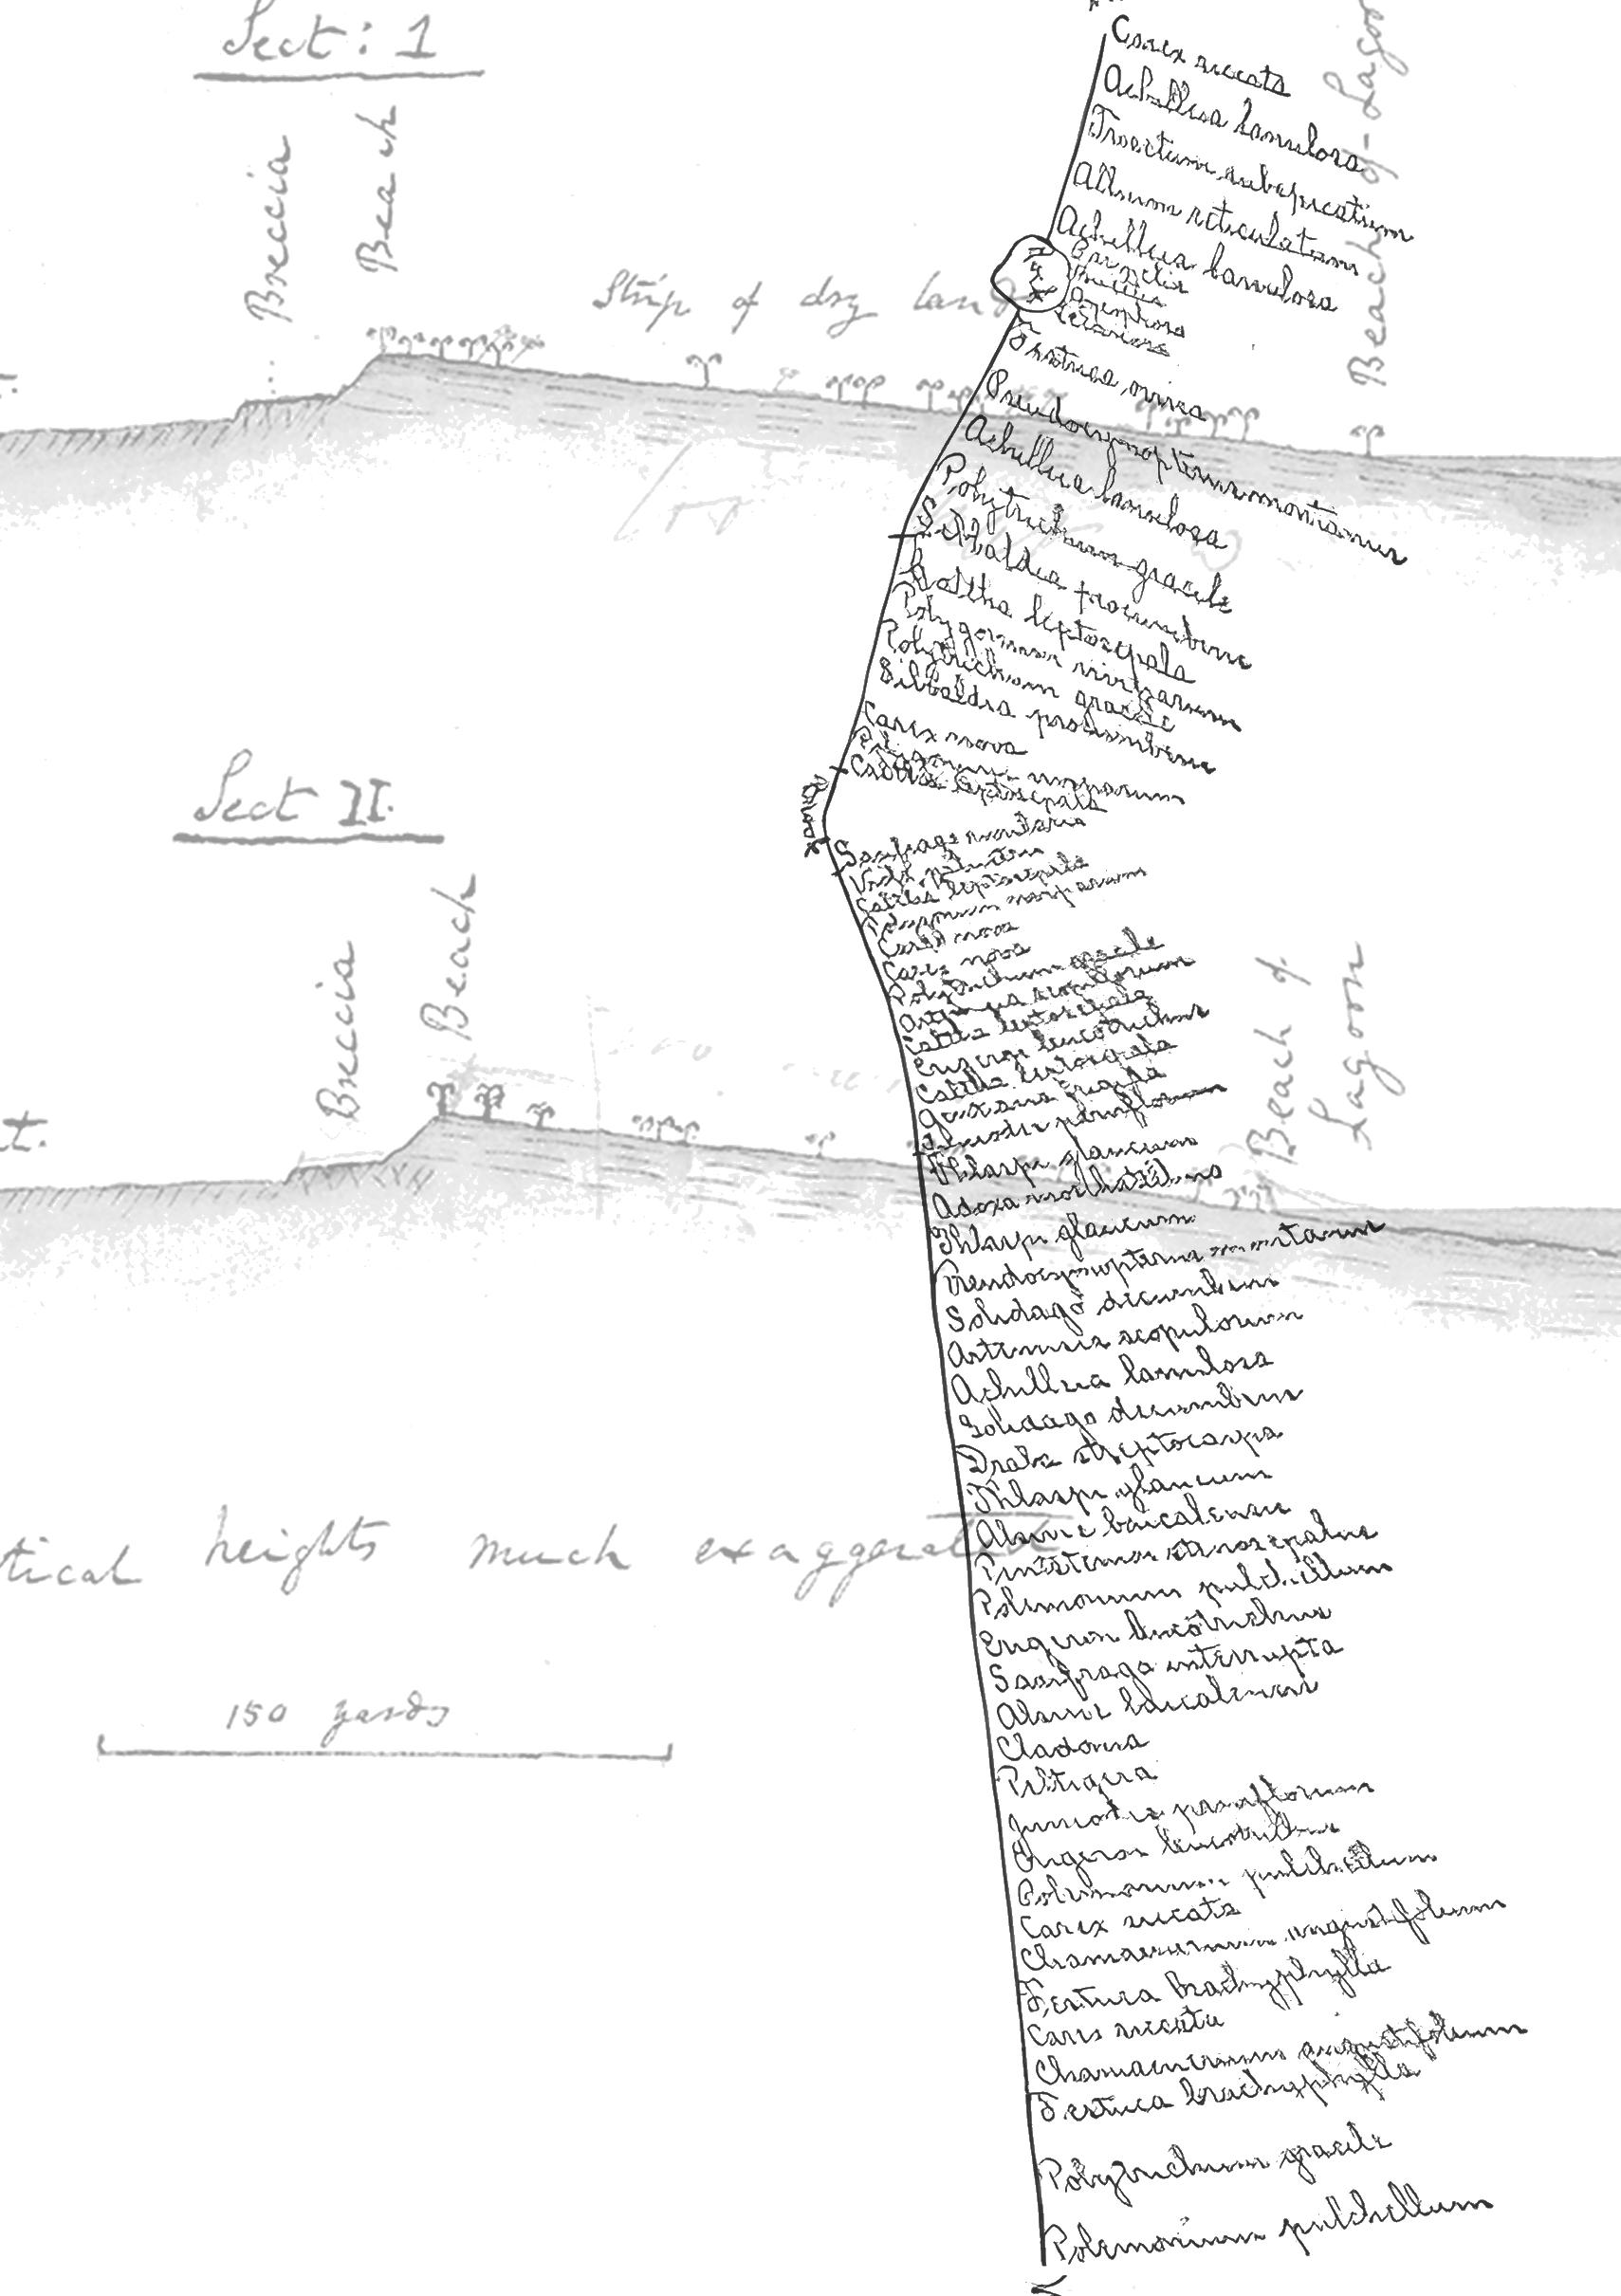 Sect: 1
Breccia
Beach
Strip of dry land
Beach of Lagoon
Sect II.
Breccia
Beach
Beach of
Lagoon
t.
tical heights much exaggerated
150 yards
Carex siccata
Achillea lanulosa
Trisetum subspicatum
Allium reticulatum
Achillea lanulosa
Festuca ovina
Pseudocymopterus montanus
Achillea lanulosa
Polytrichum gracile
Sibbaldia procumbens
Caltha leptosepala
Polygonum viviparum
Polytrichum gracile
Sibbaldia procumbens
Carex nova
Polygonum viviparum
Caltha leptosepala
Brook
Saxifraga
Viola
Caltha leptosepala
Polygonum viviparum
Carex nova
Carex nova
Polytrichum gracile
Artemisia scopulorum
Caltha leptosepala
Erigeron leucotrichus
Caltha leptosepala
Gentiana frigida
Juncodes parviflorum
Thlaspi glaucum
Adoxa moschatellina
Thlaspi glaucum
Pseudocymopterus montanus
Solidago decumbens
Artemisia scopulorum
Achillea lanulosa
Solidago decumbens
Draba streptocarpa
Thlaspi glaucum
Alsine baicalensis
Pentstemon stenosepalus
Polemonium pulchellum
Erigeron leucotrichus
Saxifraga interrupta
Alsine baicalensis
Cladonia
Peltigera
Juncodes parviflorum
Erigeron leucotrichus
Polemonium pulchellum
Carex siccata
Chamaenerium angustifolium
Festuca brachyphylla
Carex siccata
Chamaenerium angustifolium
Festuca brachyphylla
Polytrichum gracile
Polemonium pulchellum